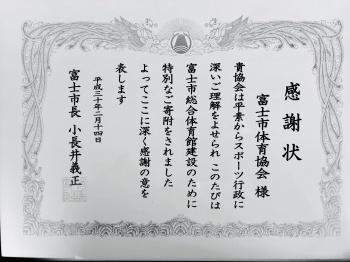 感謝状
富士市体育協会 様
貴協会は平素からスポーツ行政に
深いご理解をよせられ このたびは
富士市総合体育館建設のために
特別なご寄附をされました
よってここに深く感謝の意を
表します
平成三十年二月十四日
富士市長 小長井義正